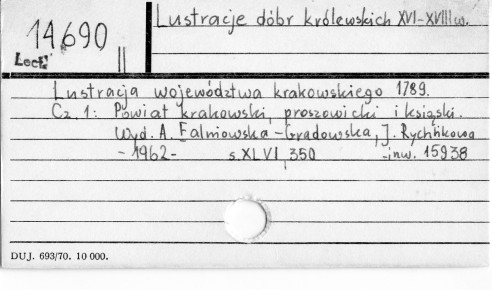 Lustracje dóbr królewskich XVI-XVIII w.
14690
II
Lect.
Lustracja województwa krakowskiego 1789.
Cz. 1: Powiat krakowski, proszowicki i ksiąski.
Wyd. A. Falniowska-Gradowska, J. Rychlikowa
-1962- s. XLVI, 350 -inw. 15938
DUJ. 693/70. 10 000.